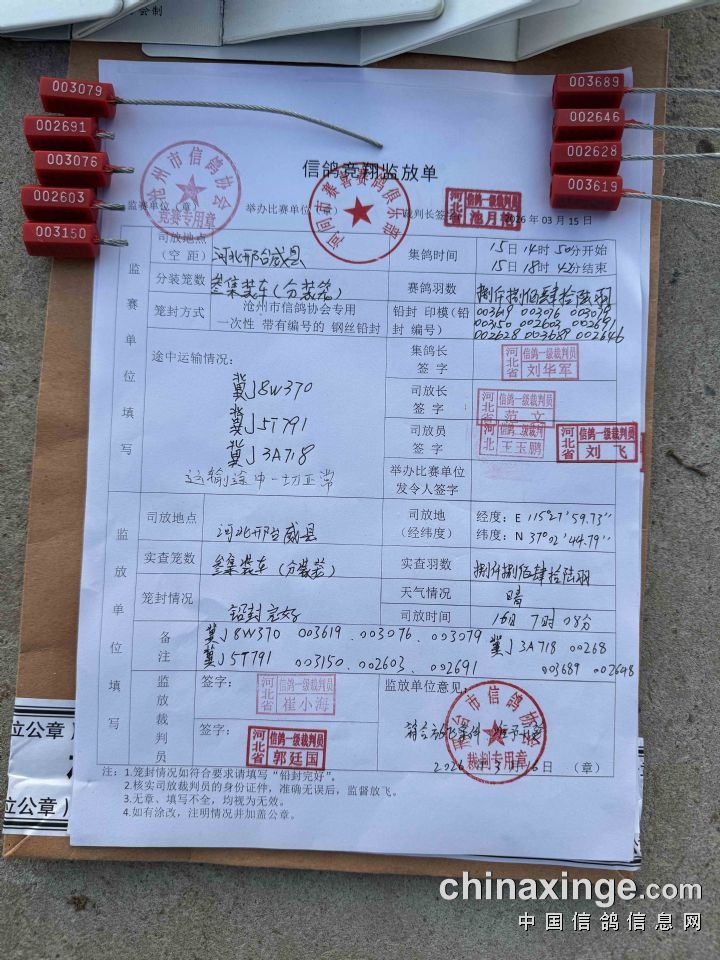 会制
003079
002691
003076
002603
003150
003689
002646
002628
003619
信鸽竞翔监放单
沧州市信鸽协会
竞赛专用章
监赛单位(章
举办比赛单位
裁判长签字
河北省
信鸽一级裁判员
2026年03月15日
监赛单位填写
司放地点
(空距)
河北邢台威县
集鸽时间
15日14时50分开始
15日18时42分结束
分装笼数
叁集装车(分装笼)
赛鸽羽数
捌仟捌佰肆拾陆羽
笼封方式
沧州市信鸽协会专用
一次性 带有编号的 钢丝铅封
铅封 印模(铅
封 编号)
003619 003076 003079
003150 002603 002691
002628 003689 002646
途中运输情况:
冀J8W370
冀J5T791
冀J3A718
运输途中一切正常
集鸽长
签 字
河北省
信鸽一级裁判员
刘华军
司放长
签 字
河北省
信鸽一级裁判员
范文
司放员
签 字
河北
信鸽一级裁判
王玉鹏
河北省
信鸽一级裁判员
刘飞
举办比赛单位
发令人签字
监放单位填写
司放地点
河北邢台威县
司放地
(经纬度)
经度:E 115°27'59.73"
纬度:N 37°02'44.79"
实查笼数
叁集装车(分装笼)
实查羽数
捌仟捌佰肆拾陆羽
笼封情况
铅封完好
天气情况
晴
司放时间
16日7时08分
备注
冀J8W370 003619 . 003076 . 003079
冀J3A718 00268
冀J5T791 003150 . 002603 . 002691
003689
监放裁判员
签字:
河北省
信鸽一级裁判员
崔小海
签字:
河北省
信鸽一级裁判员
郭廷国
监放单位意见:
市信鸽协会
裁判专用章
2026年3月16日 (章)
注:1.笼封情况如符合要求请填写“铅封完好”。
2.核实司放裁判员的身份证件,准确无误后,监督放飞。
3.无章、填写不全,均视为无效。
4.如有涂改,注明情况并加盖公章。
位公章)
位公章)
chinaxinge.com
中国信鸽信息网